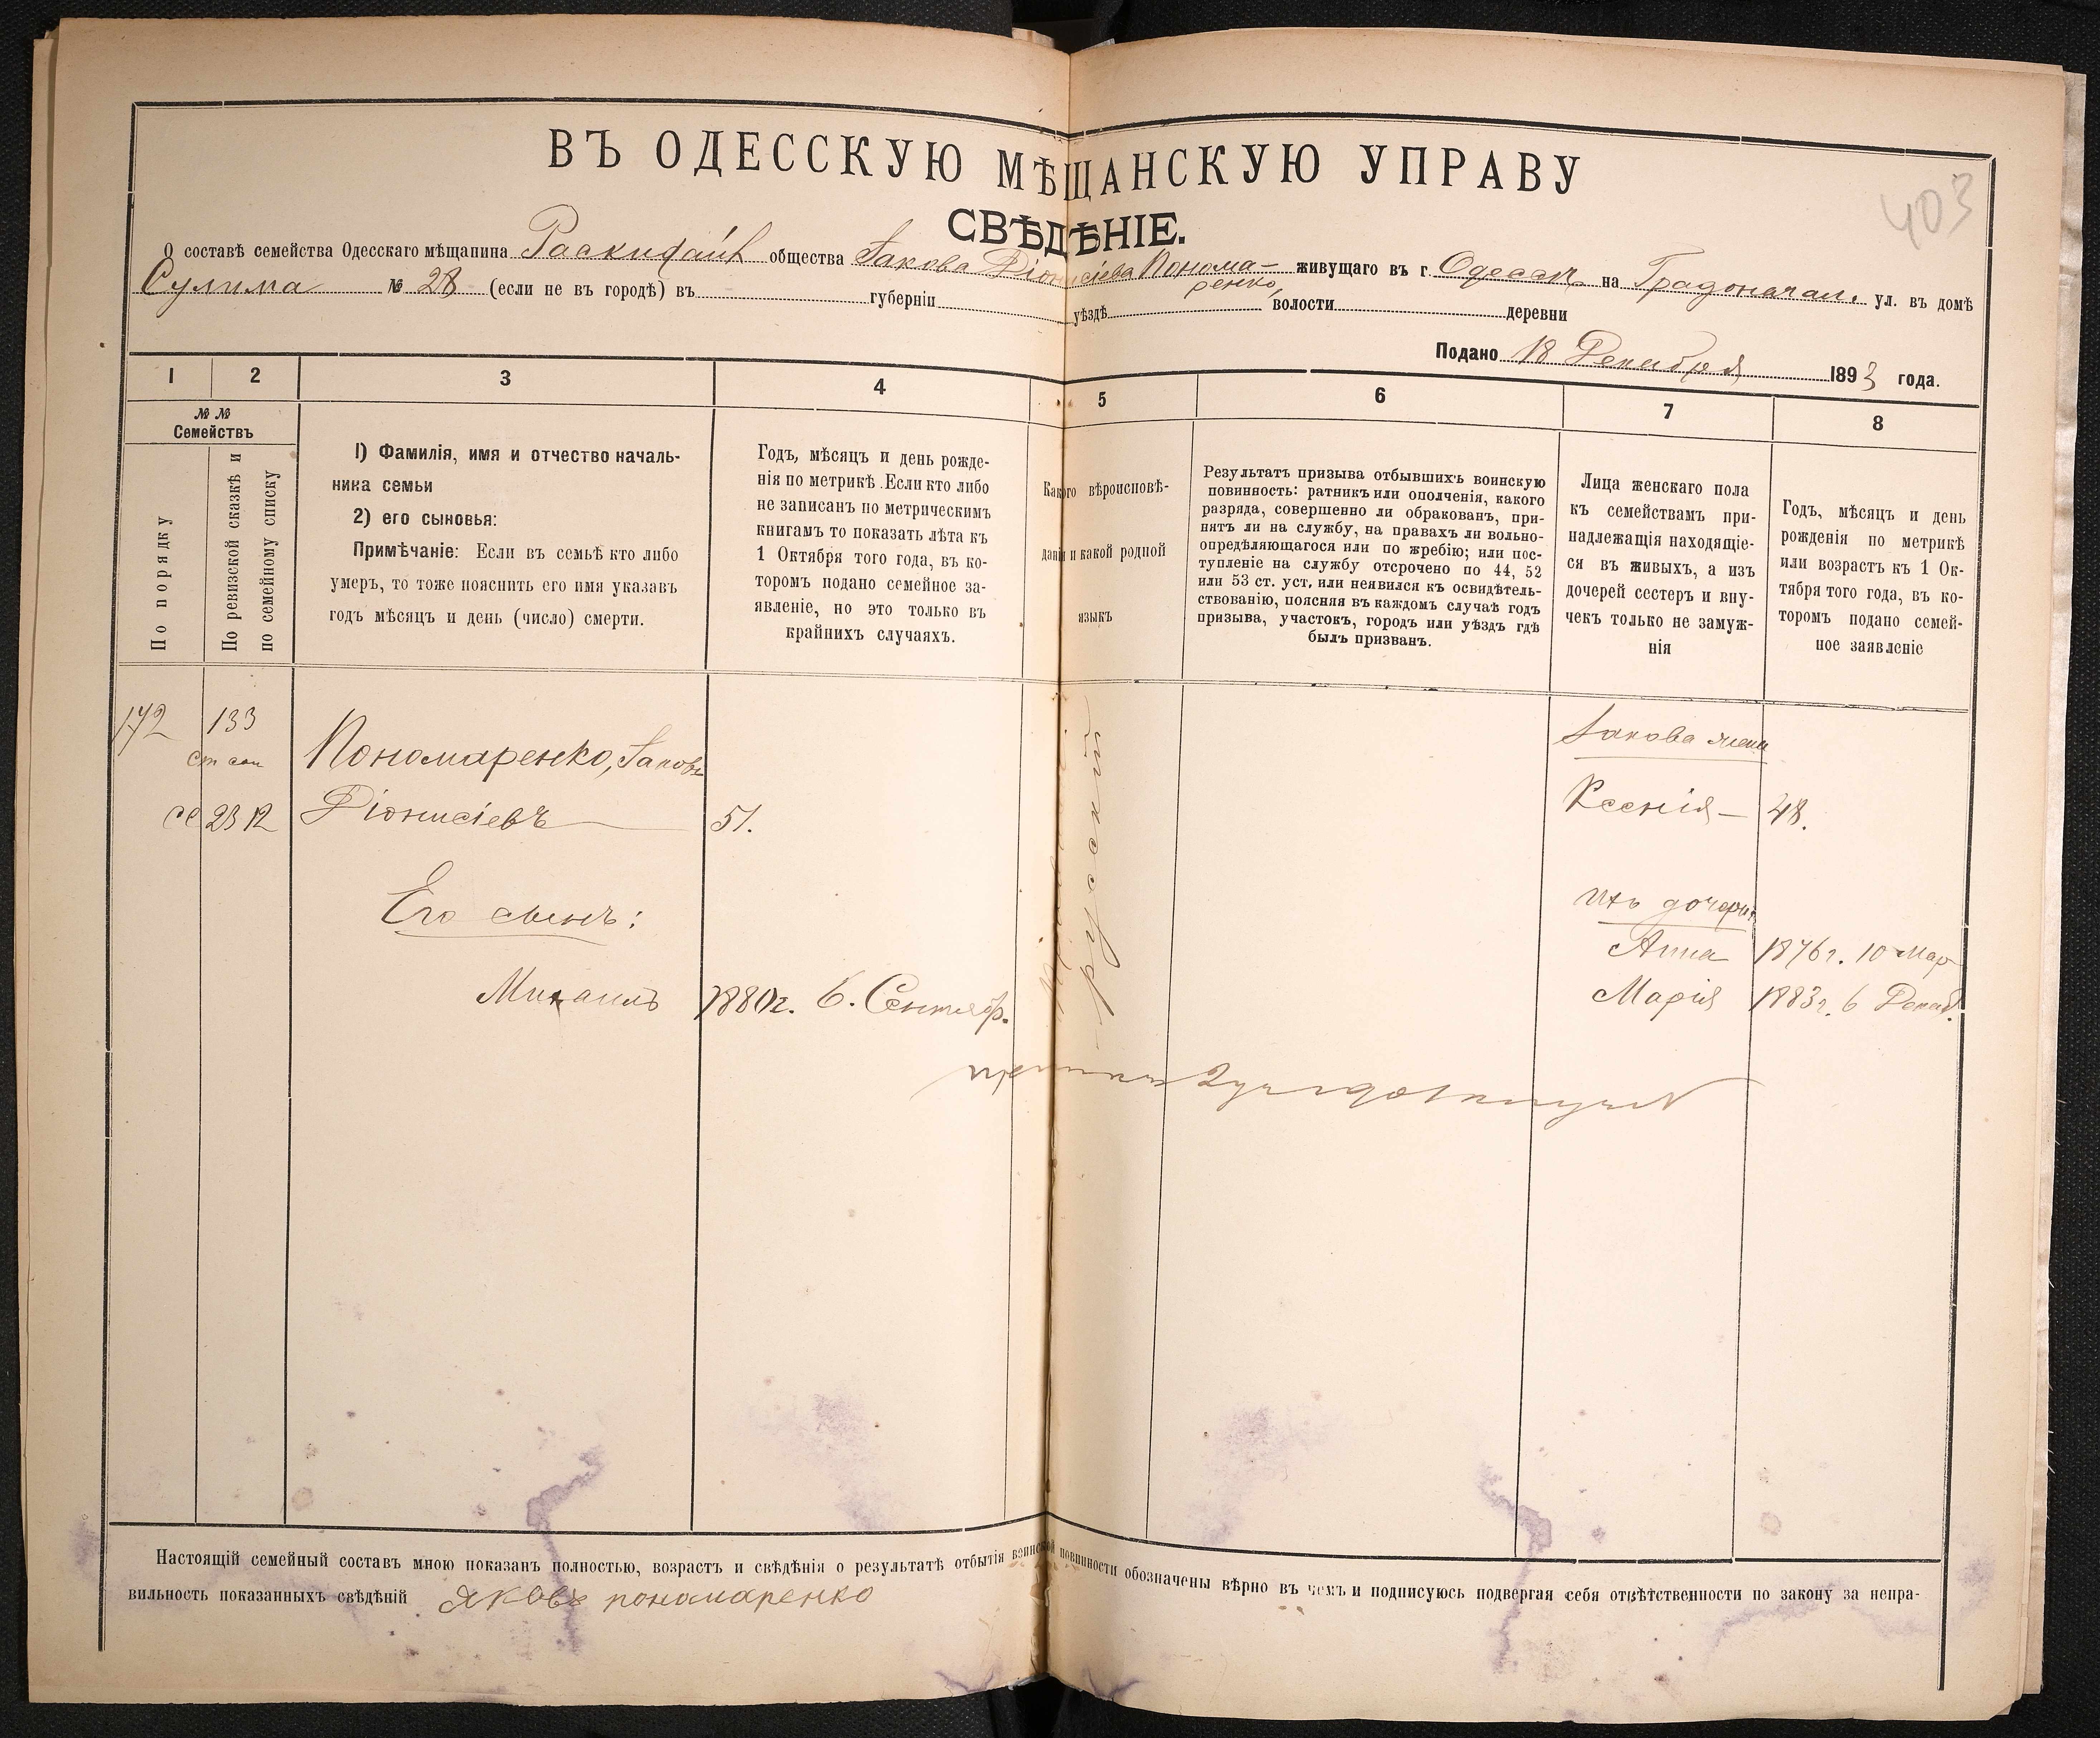 403
ВЪ ОДЕССКУЮ МѢЩАНСКУЮ УПРАВУ
СВѢДѢНІЕ.
О составѣ семейства Одесскаго мѣщанина общества Іакова Діонисіева Понома-ренко, живущаго въ г. Одессѣ на Градоначал. ул. въ домѣ
Сулима № 28 (если не въ городѣ) въ губерніи уѣздѣ волости деревни
Подано 18 Декабря 1893 года.
1 2 3 4 5 6 7 8
№ №
Семействъ
По порядку
По ревизской сказкѣ и
по семейному списку
1) Фамилія, имя и отчество началь-
ника семьи
2) его сыновья:
Примѣчаніе: Если въ семьѣ кто либо
умеръ, то тоже пояснить его имя указавъ
годъ мѣсяцъ и день (число) смерти.
Годъ, мѣсяцъ и день рожде-
нія по метрикѣ. Если кто либо
не записанъ по метрическимъ
книгамъ то показать лѣта къ
1 Октября того года, въ ко-
торомъ подано семейное за-
явленіе, но это только въ
крайнихъ случаяхъ.
Какого вѣроисповѣ-
данія и какой родной
языкъ
Результатъ призыва отбывшихъ воинскую
повинность: ратникъ или ополченія, какого
разряда, совершенно ли обракованъ, при-
нятъ ли на службу, на правахъ ли вольно-
опредѣляющагося или по жребію; или пос-
тупленіе на службу отсрочено по 44, 52
или 53 ст. уст. или неявился къ освидѣтель-
ствованію, поясняя въ каждомъ случаѣ годъ
призыва, участокъ, городъ или уѣздъ гдѣ
былъ призванъ.
Лица женскаго пола
къ семействамъ при-
надлежащія находящіе-
ся въ живыхъ, а изъ
дочерей сестеръ и вну-
чекъ только не замуж-
нія
Годъ, мѣсяцъ и день
рожденія по метрикѣ
или возрастъ къ 1 Ок-
тября того года, въ ко-
торомъ подано семей-
ное заявленіе
172 133
Пономаренко, Іаковъ
Діонисіевъ 51.
23 12
Его сынъ:
Михаилъ 1880г. 6. Сентябр.
русскій
Іакова жена
Ксенія — 48.
Ихъ дочери:
Анна 1876г. 10 Мар
Марія 1883г. 6 Декаб.
Настоящій семейный составъ мною показанъ полностью, возрастъ и свѣдѣнія о результатѣ отбытія воинской повинности обозначены вѣрно въ чемъ и подписуюсь подвергая себя отвѣтственности по закону за непра-
вильность показанныхъ свѣдѣній Яковъ пономаренко